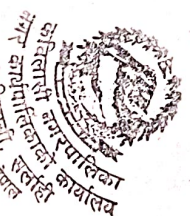 कविलासी नगरपालिका
नगर कार्यपालिकाको कार्यालय
सर्लाही